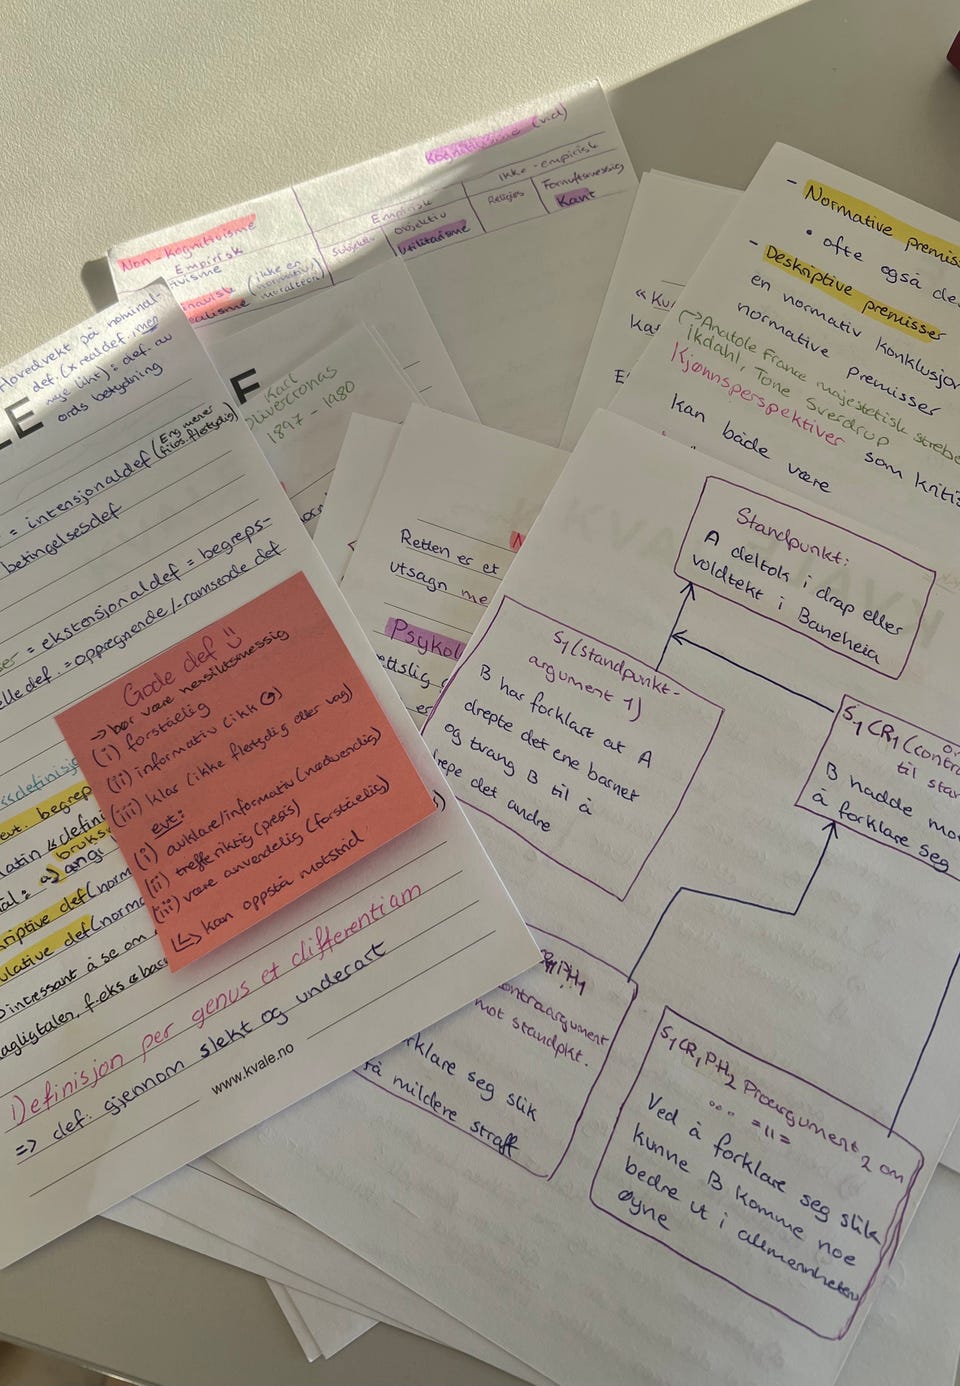 Kognitivisme (vid)
Non-kognitivisme
Empirisk
Ikke-empirisk
Empirisk
Subjektiv
Objektiv
Utilitarisme
Religiøs
Fornuftsmessig
Kant
(ikke en
normativ
moralteori)
Hovedvekt på nominal-
def. (x realdef. men
mye likt): def. av
ords betydning
LE
= intensjonaldef (Eng mener
filos. flertydig)
betingelsesdef
= ekstensjonaldef = begreps-
def. = oppregnende/-ramsende def
F
Karl
Olivercronas
1897 - 1980
Gode def
→ bør være hensiktsmessig
(i) forståelig
(ii) informativ (ikk
(iii) klar (ikke flertydig eller vag)
evt:
(i) avklare/informativ (nødvendig)
(ii) treffe riktig (presis)
(iii) være anvendelig (forståelig)
↳ kan oppstå motstrid
evt. begrep
latin «defini
mål: a) bruks
angi
kriptive def (norm
ulative def (norm
intressant å se om
dagligtaler, f.eks «bar
Definisjon per genus et differentiam
=> def: gjennom slekt og underart
www.kvale.no
Retten er et
utsagn me
Psykol
ettslig
er
- Normative premiss
• ofte også de
- Deskriptive premisser
en normativ konklusjon
normative premisser
→ Anatole France majestetisk strebe
ikdahl, Tone Sverdrup
Kjønnsperspektiver som kriti
kan både være
Standpunkt:
A deltok i drap eller
voldtekt i Baneheia
S1 (standpunkt-
argument 1)
B har forklart at A
drepte det ene barnet
og tvang B til å
drepe det andre
S1CR1 (contra
til stan
B hadde mo
å forklare seg
ontraargument
mot standpkt.
rklare seg slik
få mildere straff
S1CR1PH2 Proargument 2 om
=11=
Ved å forklare seg slik
kunne B komme noe
bedre ut i allmennhetens
øyne